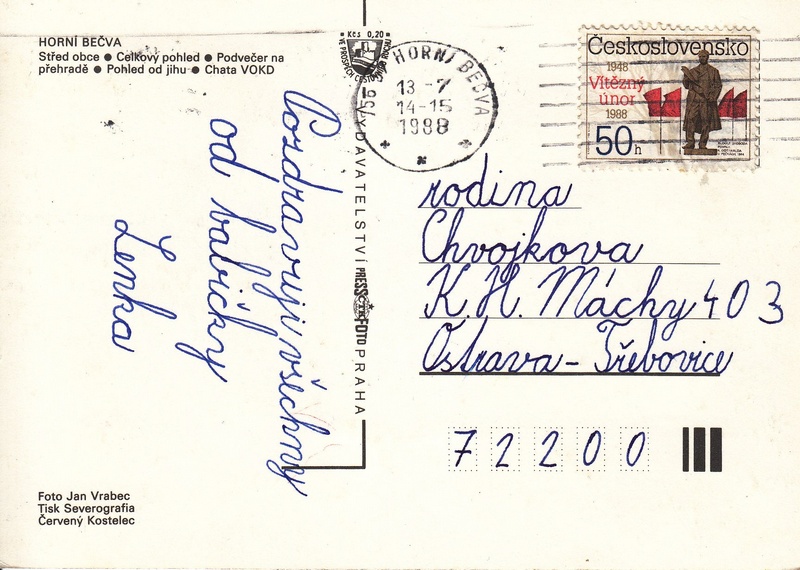 HORNÍ BEČVA
Střed obce ● Celkový pohled ● Podvečer na
přehradě ● Pohled od jihu ● Chata VOKD
Kčs 0,20
HORNÍ BEČVA
756
13 -7
14-15
1988
Československo
1948
Vítězný
únor
1988
50h
Pozdravuji všechny
od babičky
Lenka
VYDAVATELSTVÍ PRESSFOTO PRAHA
ČTK
rodina
Chvojkova
K.H. Máchy 403
Ostrava - Třebovice
72200
Foto Jan Vrabec
Tisk Severografia
Červený Kostelec